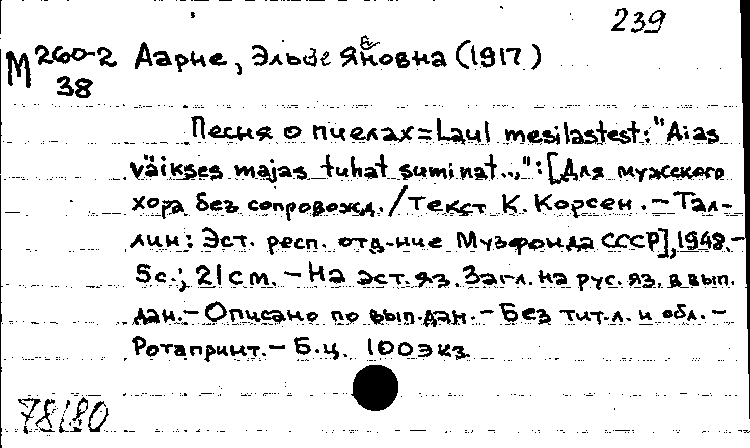 239
М 260-2 Аарне, Эльзе Яновна (1917)
38
Песня о пчелах = Laul mesilastest: "Aias
väikses majas tuhat suminat..,": [Для мужского
хора без сопровожд. / Текст К. Корсен. - Тал-
лин: Эст. респ. отд-ние Музфонда СССР], 1948. -
5с.; 21см. - На эст. яз. Загл. на рус. яз. в вып.
дан. - Описано по вып. дан. - Без тит. л. и обл. -
Ротапринт. - Б.ц. 100экз.
78180